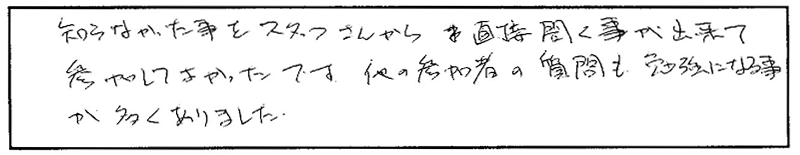 知らなかった事をスタッフさんから直接聞く事が出来て
参加してよかったです 他の参加者の質問も勉強になる事
が多くありました.